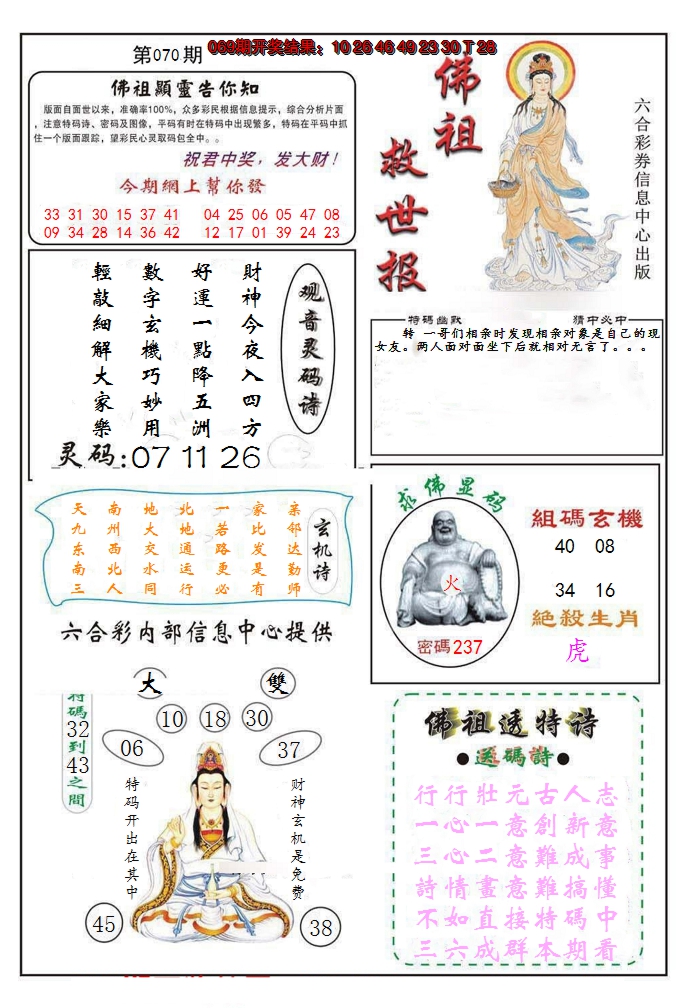 第070期
069期开奖结果：10 26 46 49 23 30 T 28
佛祖顯靈告你知
版面自面世以来，准确率100%，众多彩民根据信息提示，综合分析片面
，注意特码诗、密码及图像，平码有时在特码中出现繁多，特码在平码中抓
住一个版面跟踪，望彩民心灵取码包全中。。
祝君中奖，发大财！
今期網上幫你發
33 31 30 15 37 41 04 25 06 05 47 08
09 34 28 14 36 42 12 17 01 39 24 23
佛祖
救世报
六合彩券信息中心出版
观音灵码诗
財神今夜入四方
好運一點降五洲
數字玄機巧妙用
輕敲細解大家樂
灵码:07 11 26
特碼幽默
猜中必中
转 一哥们相亲时发现相亲对象是自己的现
女友。两人面对面坐下后就相对无言了。。。
玄机诗
亲邻达勤师
家比发是有
一若路更必
北地通运行
地大交水同
南州西北人
天九东南三
六合彩内部信息中心提供
求佛显码
火
密碼237
組碼玄機
40 08
34 16
絕殺生肖
虎
大
雙
特碼32到43之間
10 18 30
06
37
特码开出在其中
财神玄机是免费
45
38
佛祖透特诗
●送碼詩●
行行壯元古人志
一心一意創新意
三心二意難成事
詩情畫意難搞懂
不如直接特碼中
三六成群本期看